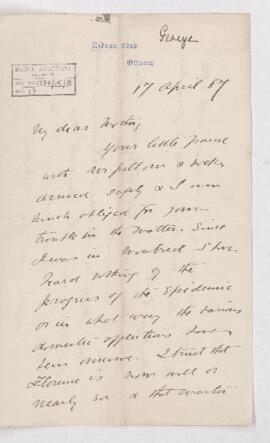 George
Rideau Club
Ottawa
17 April 87
My dear Mother,
Your little parcel
with air pillow &
arrived safely & I am
much obliged for your
trouble in the matter. Since
I was in Montreal I have
heard nothing of the
progress of the Epidemic
or in what way the various
domestic afflictions have
been. I trust that
Florence is now well or
nearly so & that